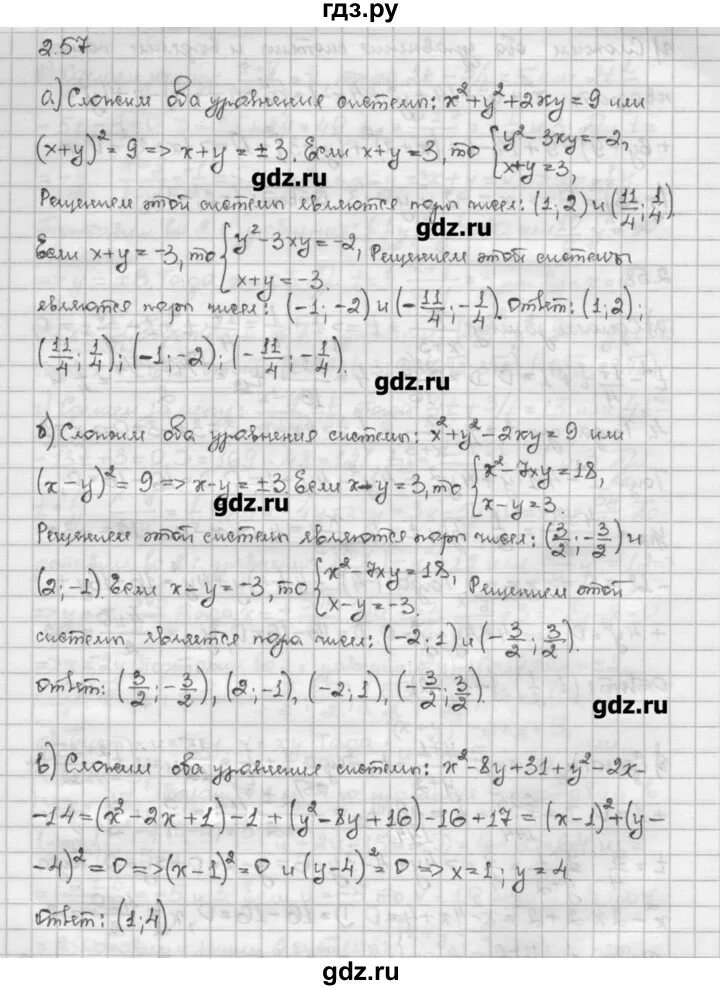 гдз.ру
2.57
а) Сложим оба уравнения системы: x² + y² + 2xy = 9 или
(x+y)² = 9 => x+y = ±3. Если x+y = 3, то { y² - 3xy = -2, x+y = 3,
gdz.ru
Решением этой системы являются пары чисел: (1; 2) и (11/4; 1/4).
gdz.ru
Если x+y = -3, то { y² - 3xy = -2, x+y = -3. Решением этой системы
являются пары чисел: (-1; -2) и (-11/4; -1/4). Ответ: (1; 2);
(11/4; 1/4); (-1; -2); (-11/4; -1/4).
gdz.ru
б) Сложим оба уравнения системы: x² + y² - 2xy = 9 или
(x-y)² = 9 => x-y = ±3. Если x-y = 3, то { x² - 7xy = 18, x-y = 3.
gdz.ru
Решением этой системы являются пары чисел: (3/2; -3/2) и
(2; -1). Если x-y = -3, то { x² - 7xy = 18, x-y = -3. Решением этой
системы является пара чисел: (-2; 1) и (-3/2; 3/2).
Ответ: (3/2; -3/2), (2; -1), (-2; 1), (-3/2; 3/2).
gdz.ru
в) Сложим оба уравнения системы: x² - 8y + 31 + y² - 2x -
-14 = (x² - 2x + 1) - 1 + (y² - 8y + 16) - 16 + 17 = (x-1)² + (y-
-4)² = 0 => (x-1)² = 0 и (y-4)² = 0 => x = 1; y = 4.
Ответ: (1; 4).
gdz.ru